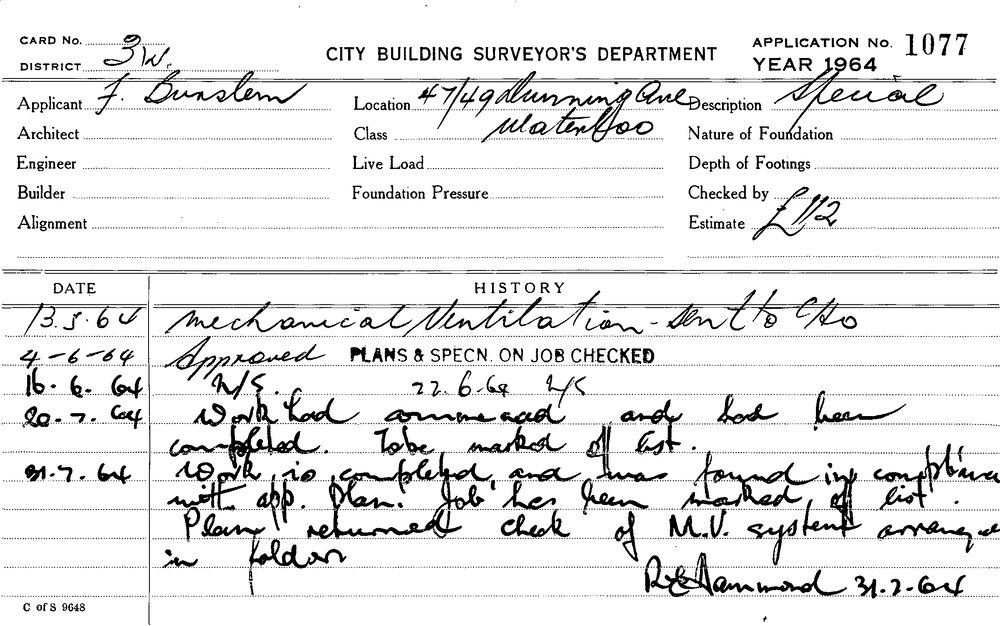 CARD No.
DISTRICT 3W.
CITY BUILDING SURVEYOR'S DEPARTMENT
APPLICATION No. 1077
YEAR 1964
Applicant F. Location 47/49 Dunning Ave Description Special
Architect Class Waterloo Nature of Foundation
Engineer Live Load Depth of Footings
Builder Foundation Pressure Checked by
Alignment Estimate £112
DATE HISTORY
13.5.64 Mechanical Ventilation - Sent to C/Ho
4-6-64 Approved PLANS & SPECN. ON JOB CHECKED
16.6.64 N/S. 22.6.64 N/S
20.7.64 Work had commenced and had been
completed. To be marked off list.
31.7.64 Work is completed and was found in
with app. Plan. Job has been marked off list.
Plan returned check of M.V. system
in folder
Hammond 31.7.64
C of S 9648